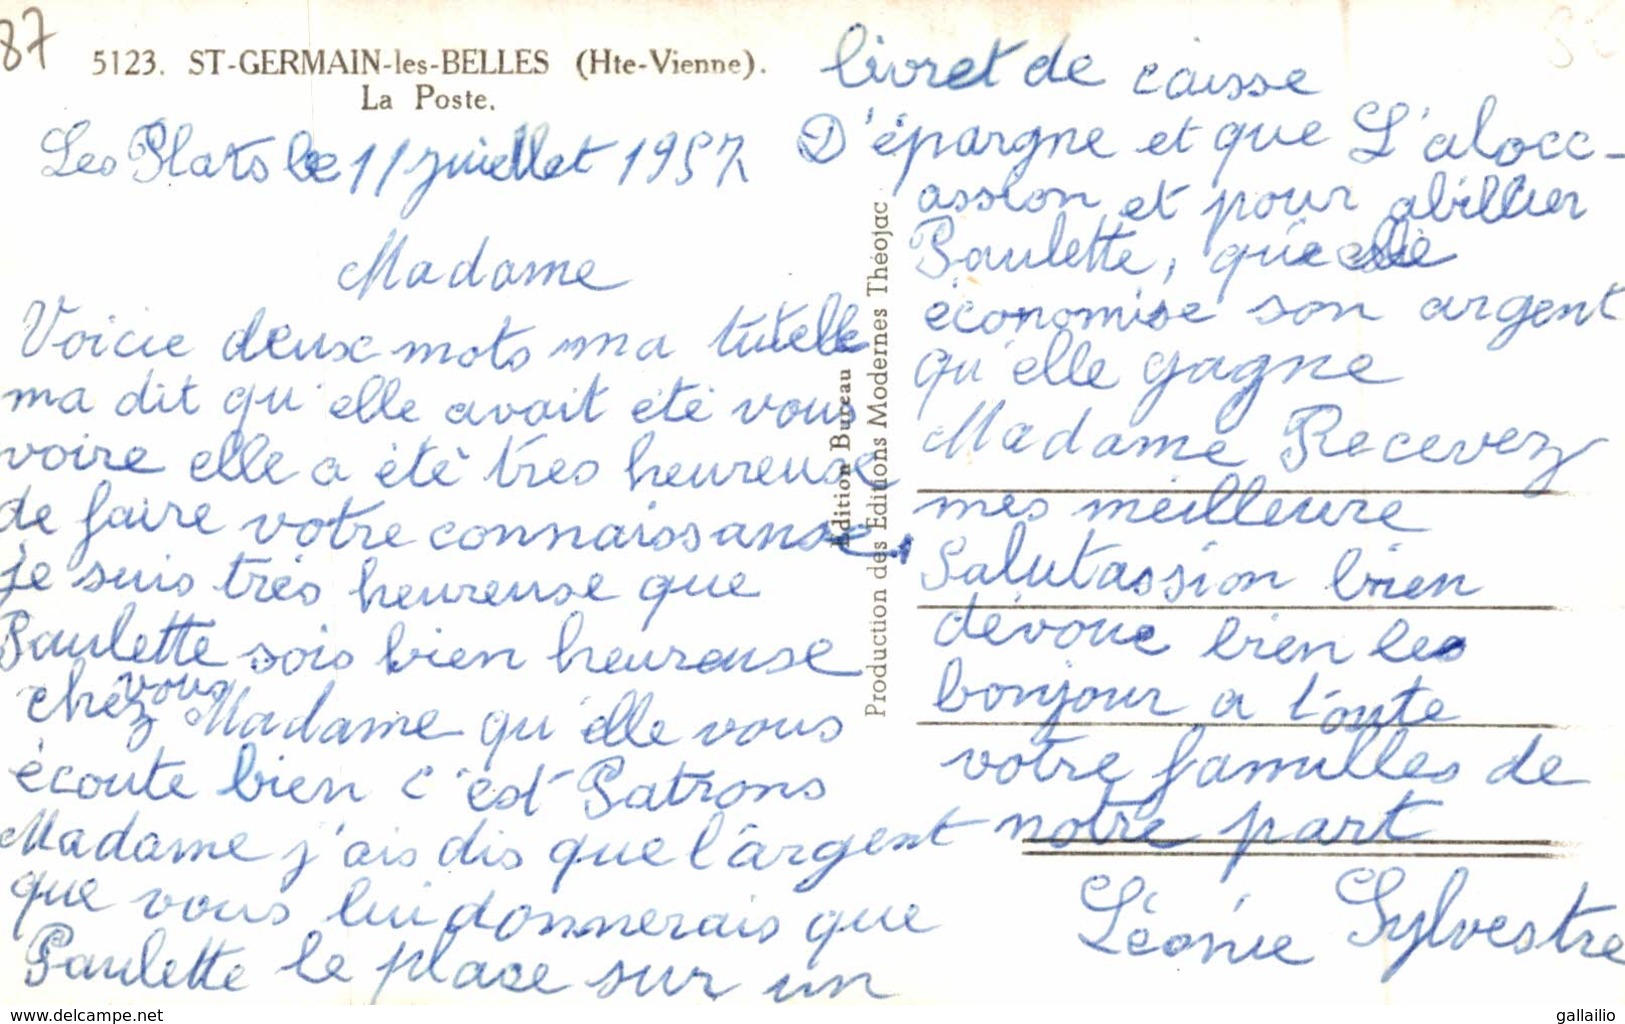 87
5123. ST-GERMAIN-les-BELLES (Hte-Vienne).
La Poste.
Les Plats le 11 juillet 1957
Madame
Voicie deux mots ma tutelle
ma dit qu'elle avait été vous
voire elle a été très heureuse
de faire votre connaissanse,
je suis très heureuse que
Paulette sois bien heureuse
chez vous Madame qu'elle vous
écoute bien c'est Patrons
Madame j'ais dis que l'argent
que vous lui donnerais que
Paulette le place sur un
Edition Bureau
Production des Editions Modernes Théojac
livret de caisse
D'épargne et que L'alocc-
assion et pour abillier
Paulette, que elle
économise son argent
qu'elle gagne
Madame Recevez
mes meilleure
Salutassion bien
dévoue bien les
bonjour a toute
votre familles de
notre part
Léonie Sylvestre
www.delcampe.net
gallailio